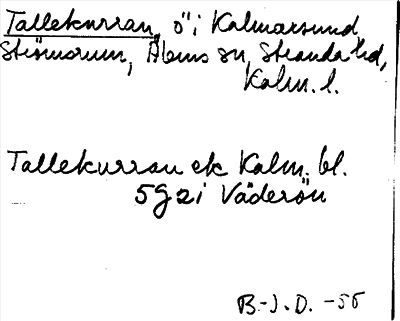 Tallekurran, ö i Kalmarsund
Strömsrum, Ålems sn, Stranda hd,
Kalm. l.
Tallekurran ek Kalm. bl.
5G2i Väderön
B-J. D. -55